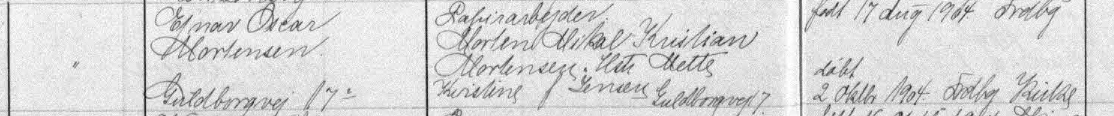 Ejnar Oscar
Mortensen
Guldborgvej 17²
Papirarbejder
Morten Mikal Kristian
Mortensen. Hstr Mette
Kristine Jensen Guldborgvej 17.
født 17 Aug 1904. Frdbg
døbt
2 Oktbr 1904. Frdbg Kirke